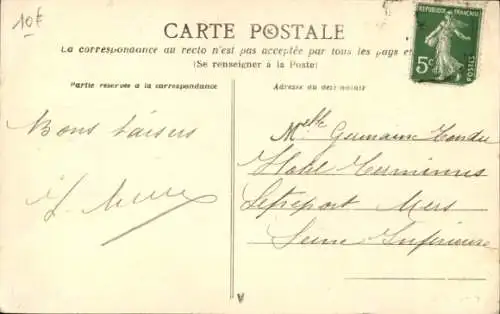 10F
CARTE POSTALE
La correspondance au recto n'est pas acceptée par tous les pays et
(Se renseigner à la Poste)
REPUBLIQUE FRANÇAISE
5c
POSTES
Partie réservée à la correspondance
Adresse du destinataire
Bons baisers
Melle Germaine
Hotel Terminus
Letreport Mers
Seine Inférieure